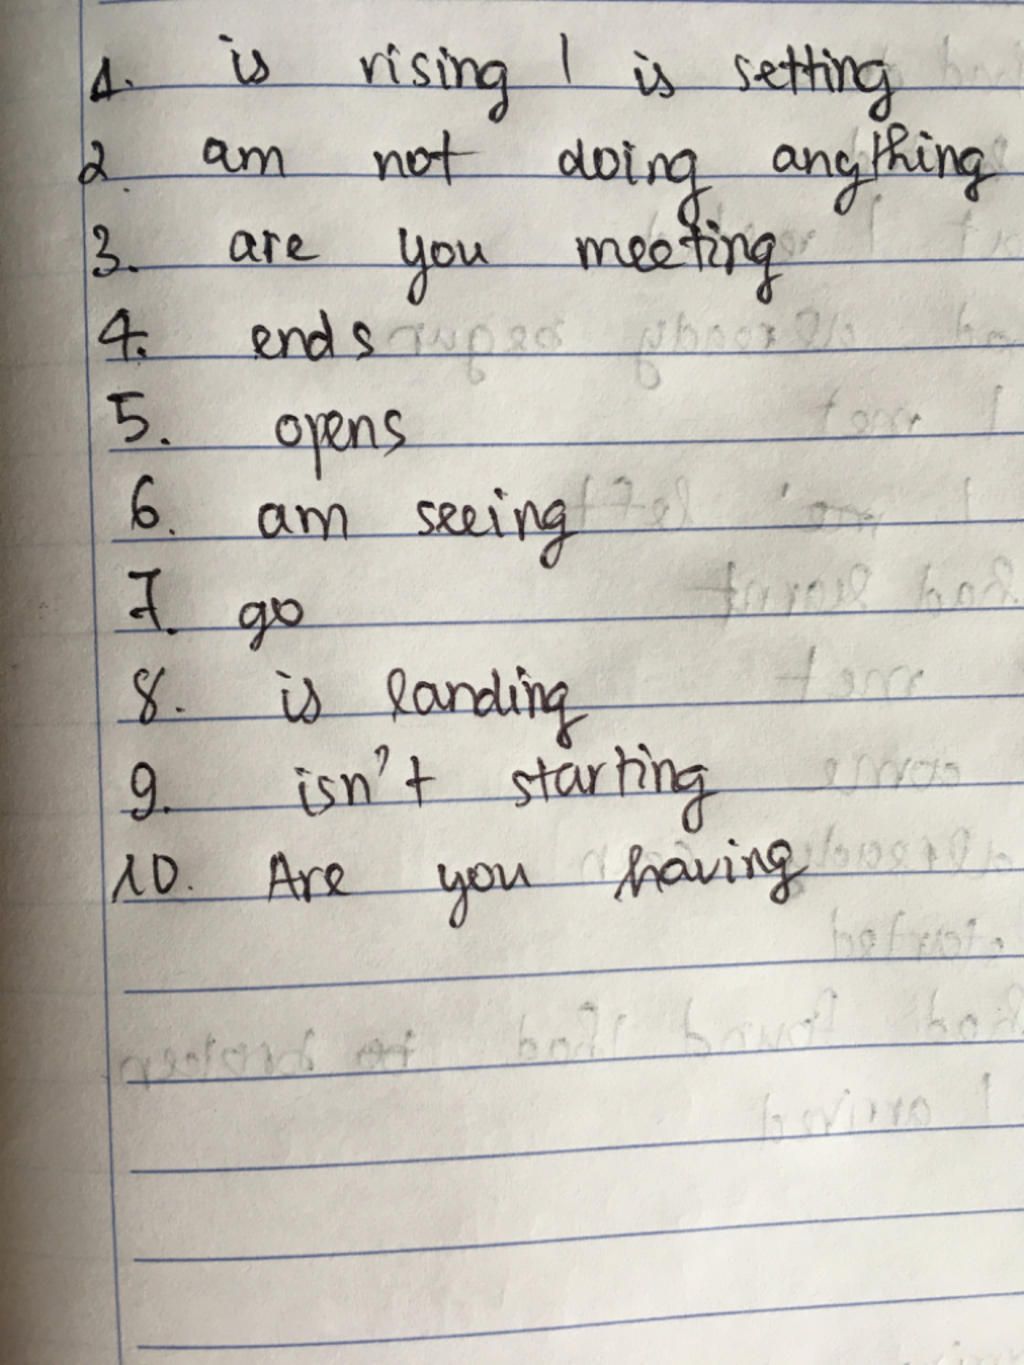 1. is rising / is setting
2. am not doing anything
3. are you meeting
4. ends
5. opens
6. am seeing
7. go
8. is landing
9. isn't starting
10. Are you having